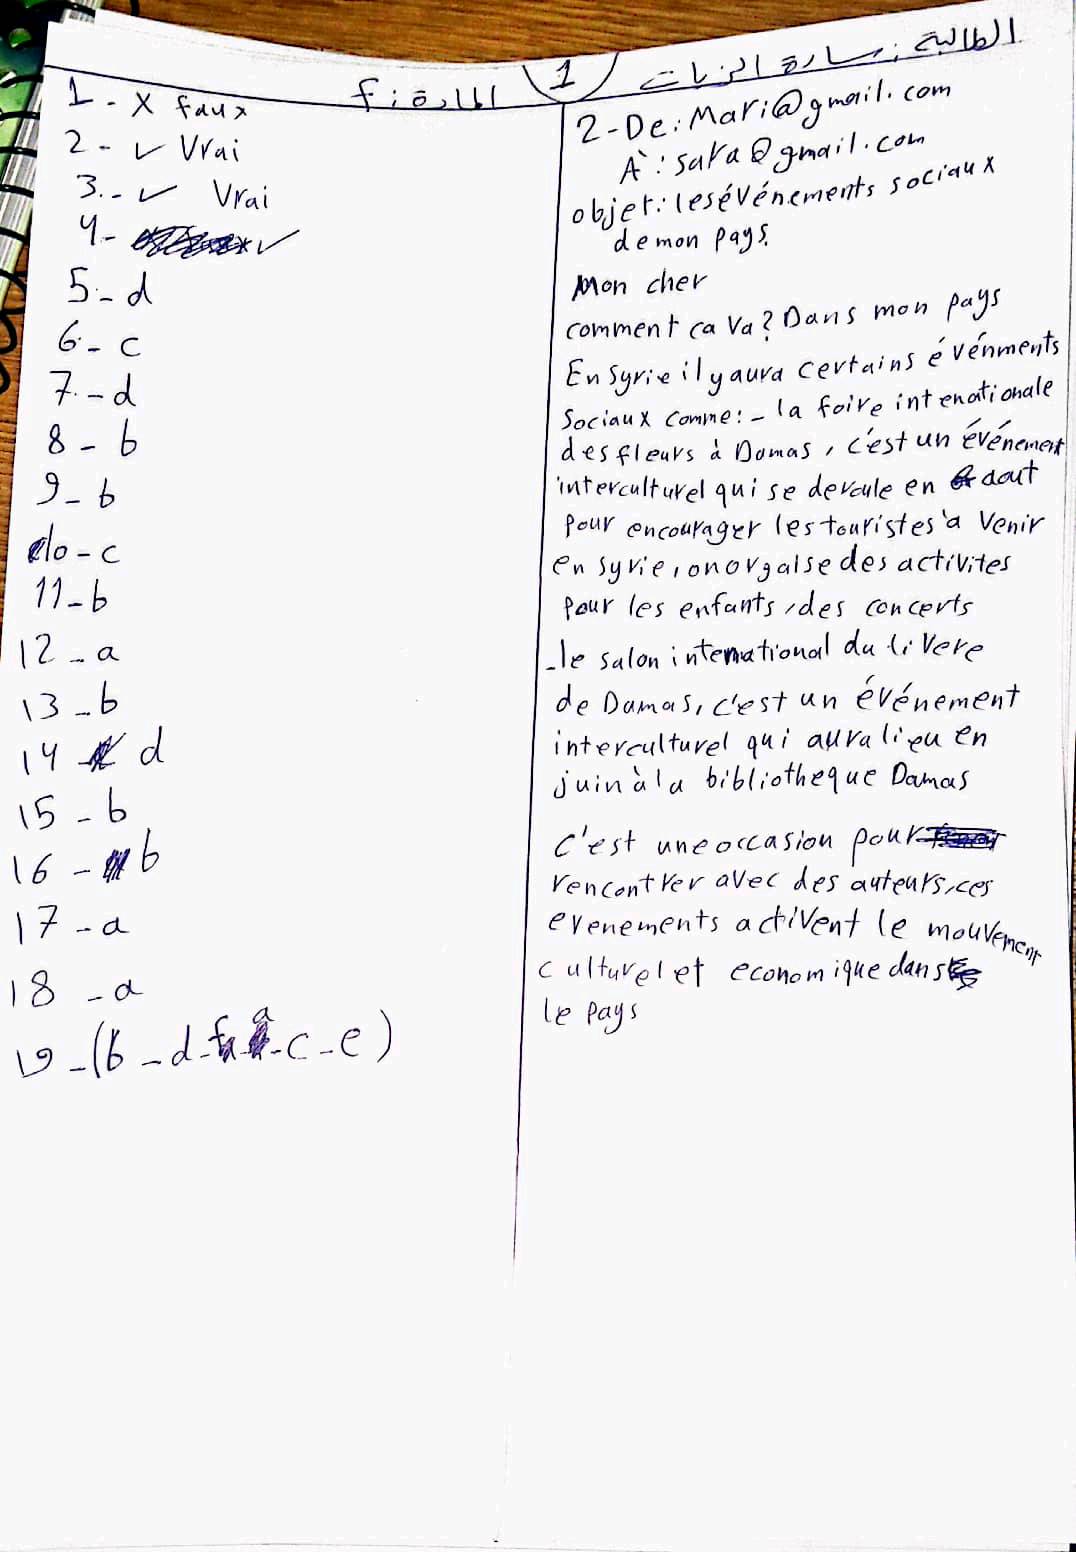 الطالبة : سارة الزيات
1
المادة : f
1 - X faux
2 - ✓ Vrai
3 - ✓ Vrai
4 - ✓
5 - d
6 - c
7 - d
8 - b
9 - b
10 - c
11 - b
12 - a
13 - b
14 d
15 - b
16 - b
17 - a
18 - a
19 - (b - d - f - a - c - e)
2 - De : Mari@gmail.com
À : sara@gmail.com
objet : les événements sociaux
de mon pays.
Mon cher
comment ca va ? Dans mon pays
En Syrie il y aura certains événments
sociaux comme : - la foire intenationale
des fleurs à Damas, c'est un événement
interculturel qui se deroule en aout
pour encourager les touristes à venir
en syrie, on orgaise des activites
pour les enfants, des concerts
- le salon international du livere
de Damas, c'est un événement
interculturel qui aura lieu en
juin à la bibliotheque Damas
C'est une occasion pour
rencontrer avec des auteurs, ces
evenements activent le mouvement
culturel et economique dans
le pays